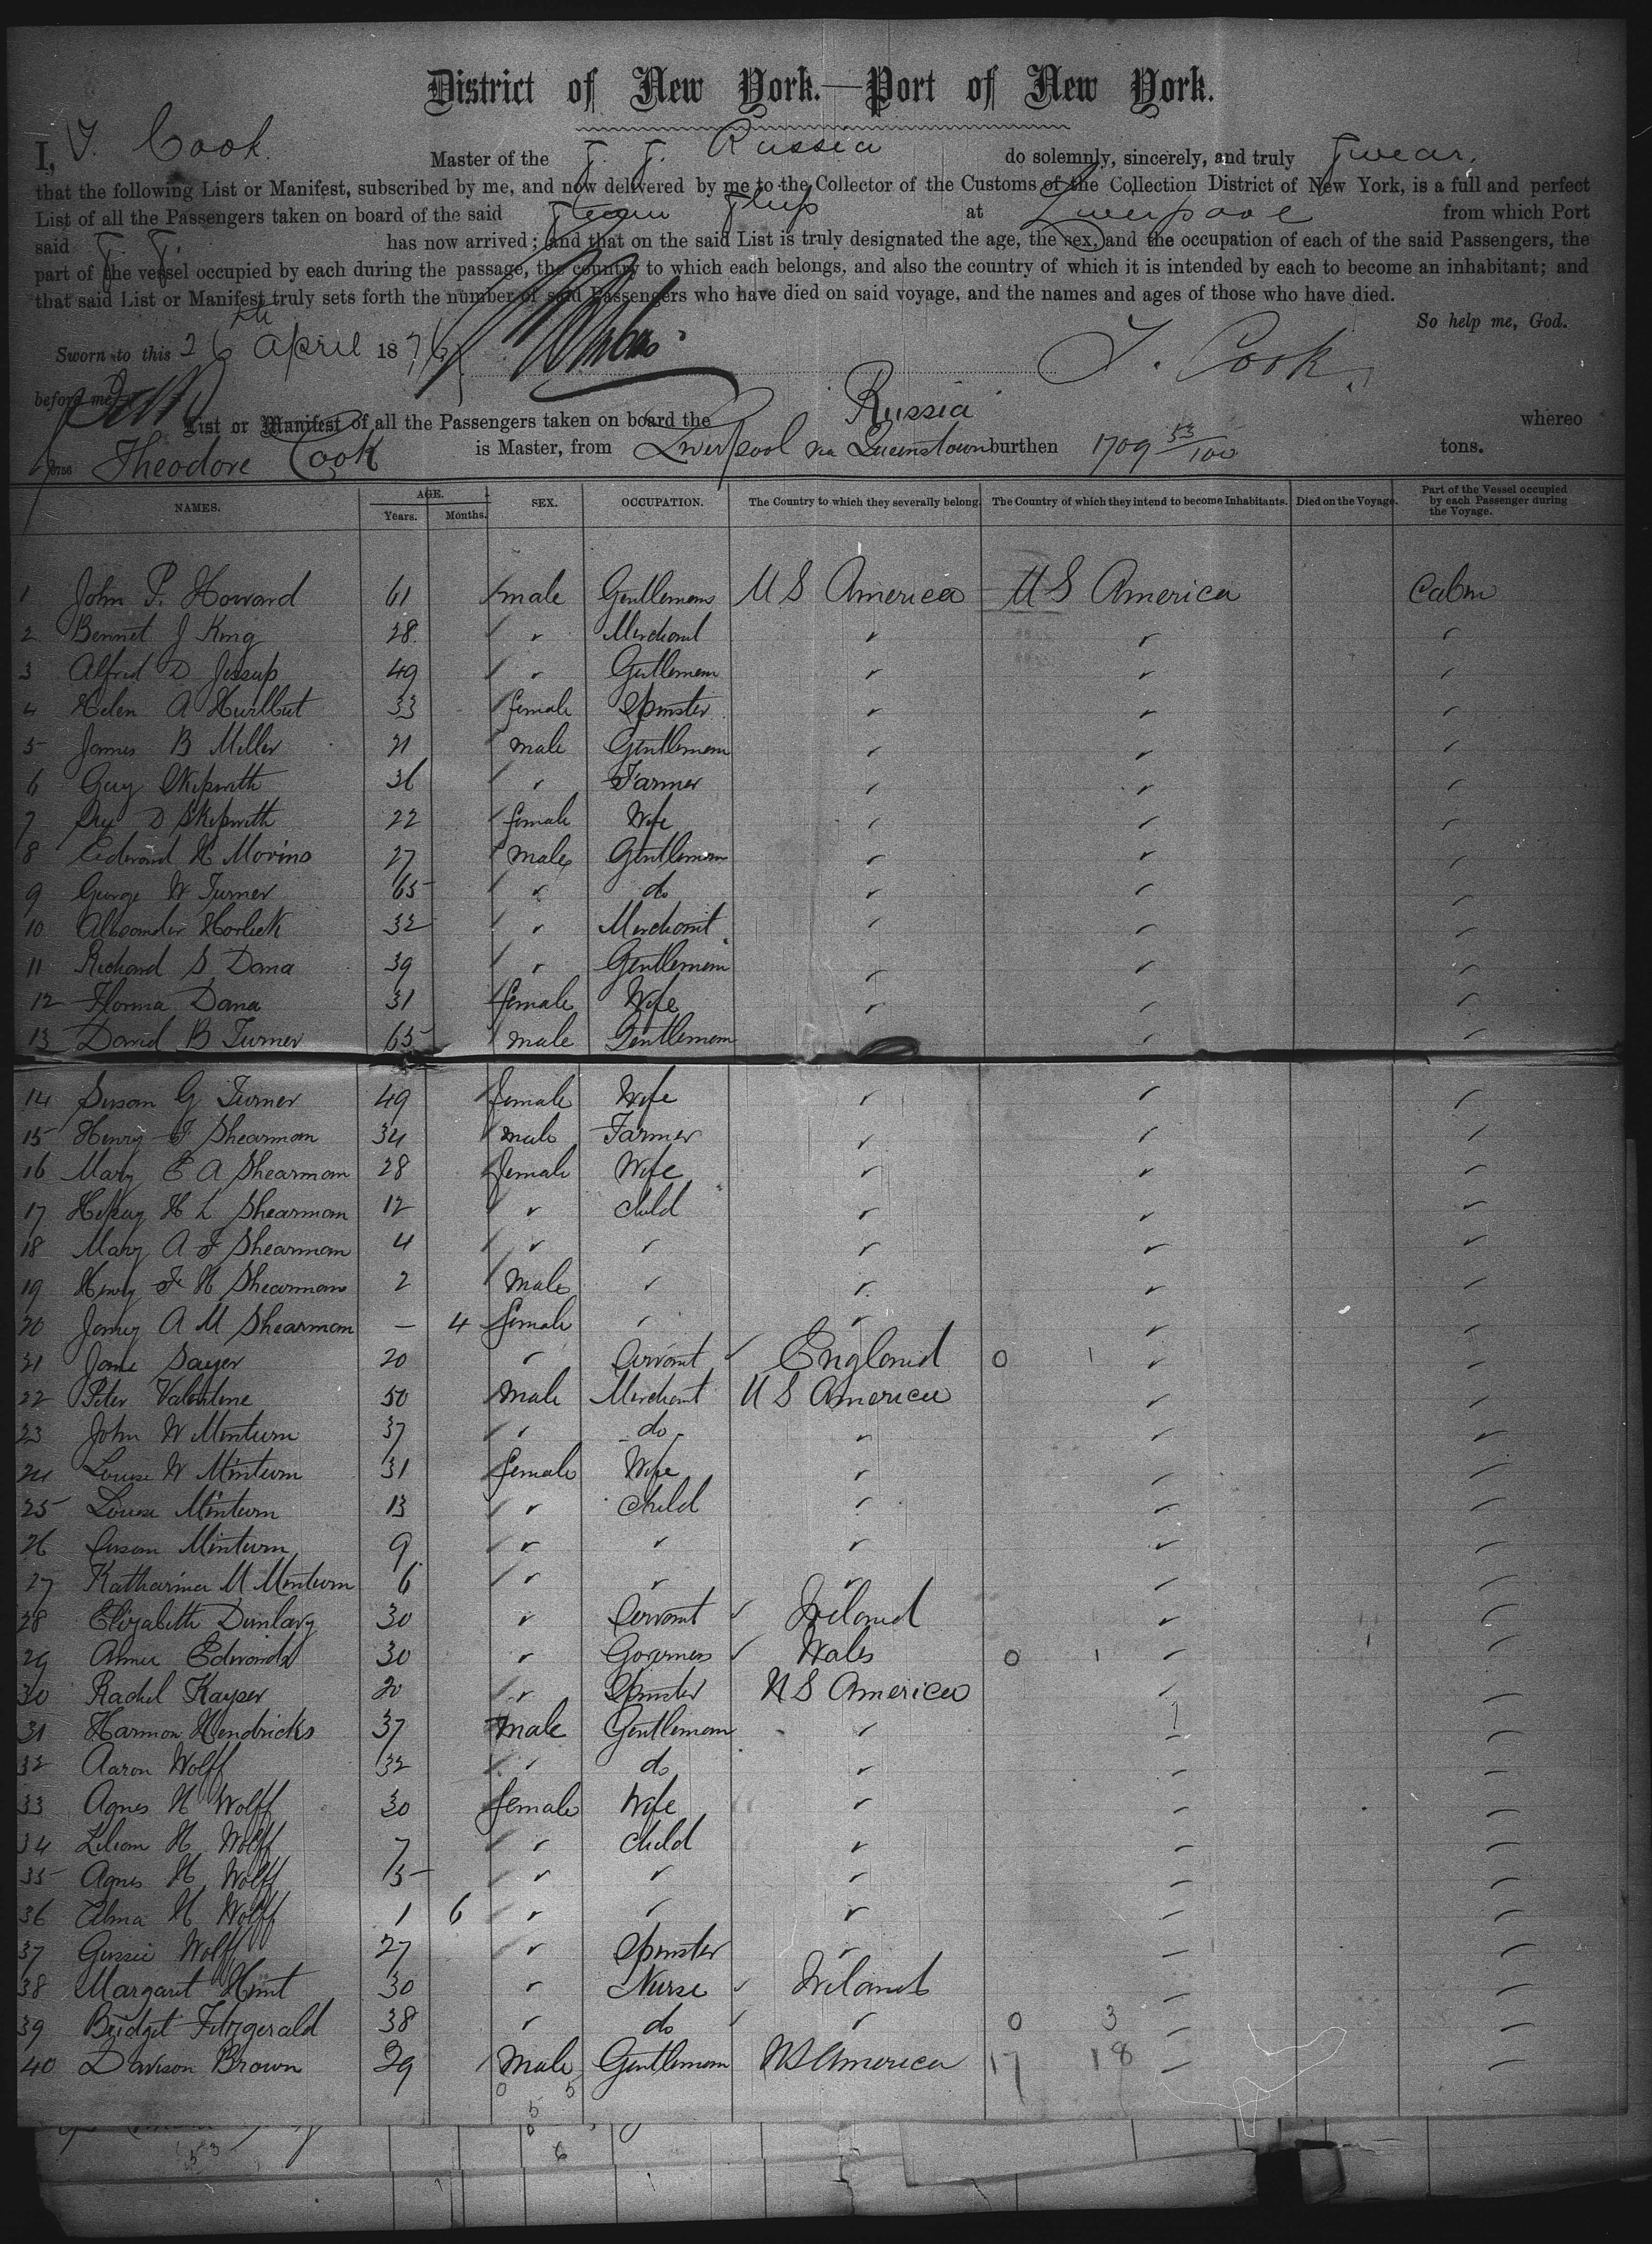 District of New York.—Port of New York.
I, T. Cook. Master of the S. S. Russia do solemnly, sincerely, and truly swear,
that the following List or Manifest, subscribed by me, and now delivered by me to the Collector of the Customs of the Collection District of New York, is a full and perfect
List of all the Passengers taken on board of the said Steam Ship at Liverpool from which Port
said S. S. has now arrived; and that on the said List is truly designated the age, the sex, and the occupation of each of the said Passengers, the
part of the vessel occupied by each during the passage, the country to which each belongs, and also the country of which it is intended by each to become an inhabitant; and
that said List or Manifest truly sets forth the number of said Passengers who have died on said voyage, and the names and ages of those who have died.
So help me, God.
Sworn to this 26th April 1876 T. Cook.
before me,
List or Manifest of all the Passengers taken on board the Russia whereo
Theodore Cook is Master, from Liverpool via Queenstown burthen 1709 53/100 tons.
NAMES. AGE. Years. Months. SEX. OCCUPATION. The Country to which they severally belong. The Country of which they intend to become Inhabitants. Died on the Voyage. Part of the Vessel occupied by each Passenger during the Voyage.
1 John P. Howard 61 male Gentleman U S America U S America Cabin
2 Bennet J King 28 " Merchant " " "
3 Alfred D Jessup 49 " Gentleman " " "
4 Helen A Hurlbut 33 female Spinster " " "
5 James B Miller 21 male Gentleman " " "
6 Guy Skipwith 36 " Farmer " " "
7 D Skipwith 22 female Wife " " "
8 Edward H 27 male Gentleman " " "
9 George W Turner 65 " do " " "
10 32 " Merchant " " "
11 Richard S Dana 39 " Gentleman " " "
12 Dana 31 female Wife " " "
13 David B Turner 65 male Gentleman " "
14 Susan G Turner 49 female Wife " " "
15 Henry F Shearman 34 male Farmer " " "
16 Mary E A Shearman 28 female Wife " " "
17 H L Shearman 12 " child " " "
18 Mary A F Shearman 4 " " " " "
19 Henry F H Shearman 2 male " " " "
20 A M Shearman — 4 female " " " "
21 Jane Sayer 20 " Servant England 0 1 " "
22 Peter Valentine 50 male Merchant U S America " "
23 John W Minturn 37 " do " " "
24 Louise W Minturn 31 female Wife " " "
25 Louise Minturn 13 " child " " "
26 Susan Minturn 9 " " " " "
27 Katharina M Minturn 6 " " " " "
28 Elizabeth Dunlavy 30 " Servant Ireland " "
29 Annie Edwards 30 " Governess Wales 0 1 " "
30 Rachel Kayser 20 " Spinster U S America " "
31 Harmon Hendricks 37 male Gentleman " " "
32 Aaron Wolff 32 " do " " "
33 Agnes H Wolff 30 female Wife " " "
34 Lilian H Wolff 7 " child " " "
35 Agnes H Wolff 5 " " " " "
36 Alma H Wolff 1 6 " " " " "
37 Gussie Wolff 27 " Spinster " " "
38 Margaret Hunt 30 " Nurse Ireland " "
39 Bridget Fitzgerald 38 " do " 0 3 " "
40 Davison Brown 29 male Gentleman U S America 17 18 " "
0 5
5
0
53
6